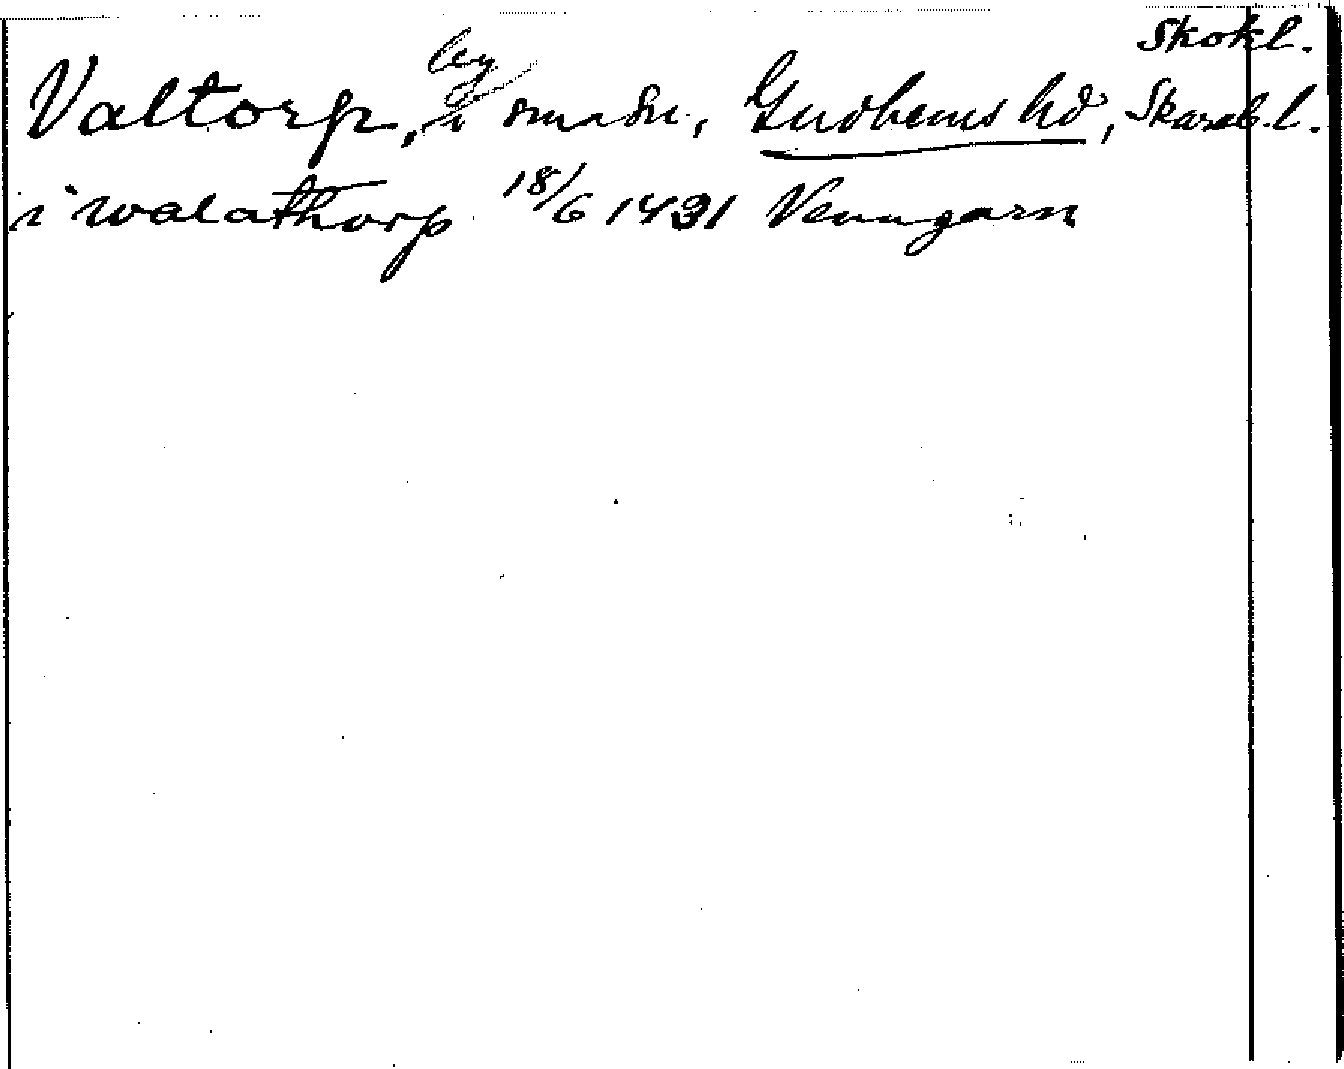 Skokl.
by
Valtorp, i smdsn, Gudhems hd, Skarab.l.
i walathorp 18/6 1431 Venngarn